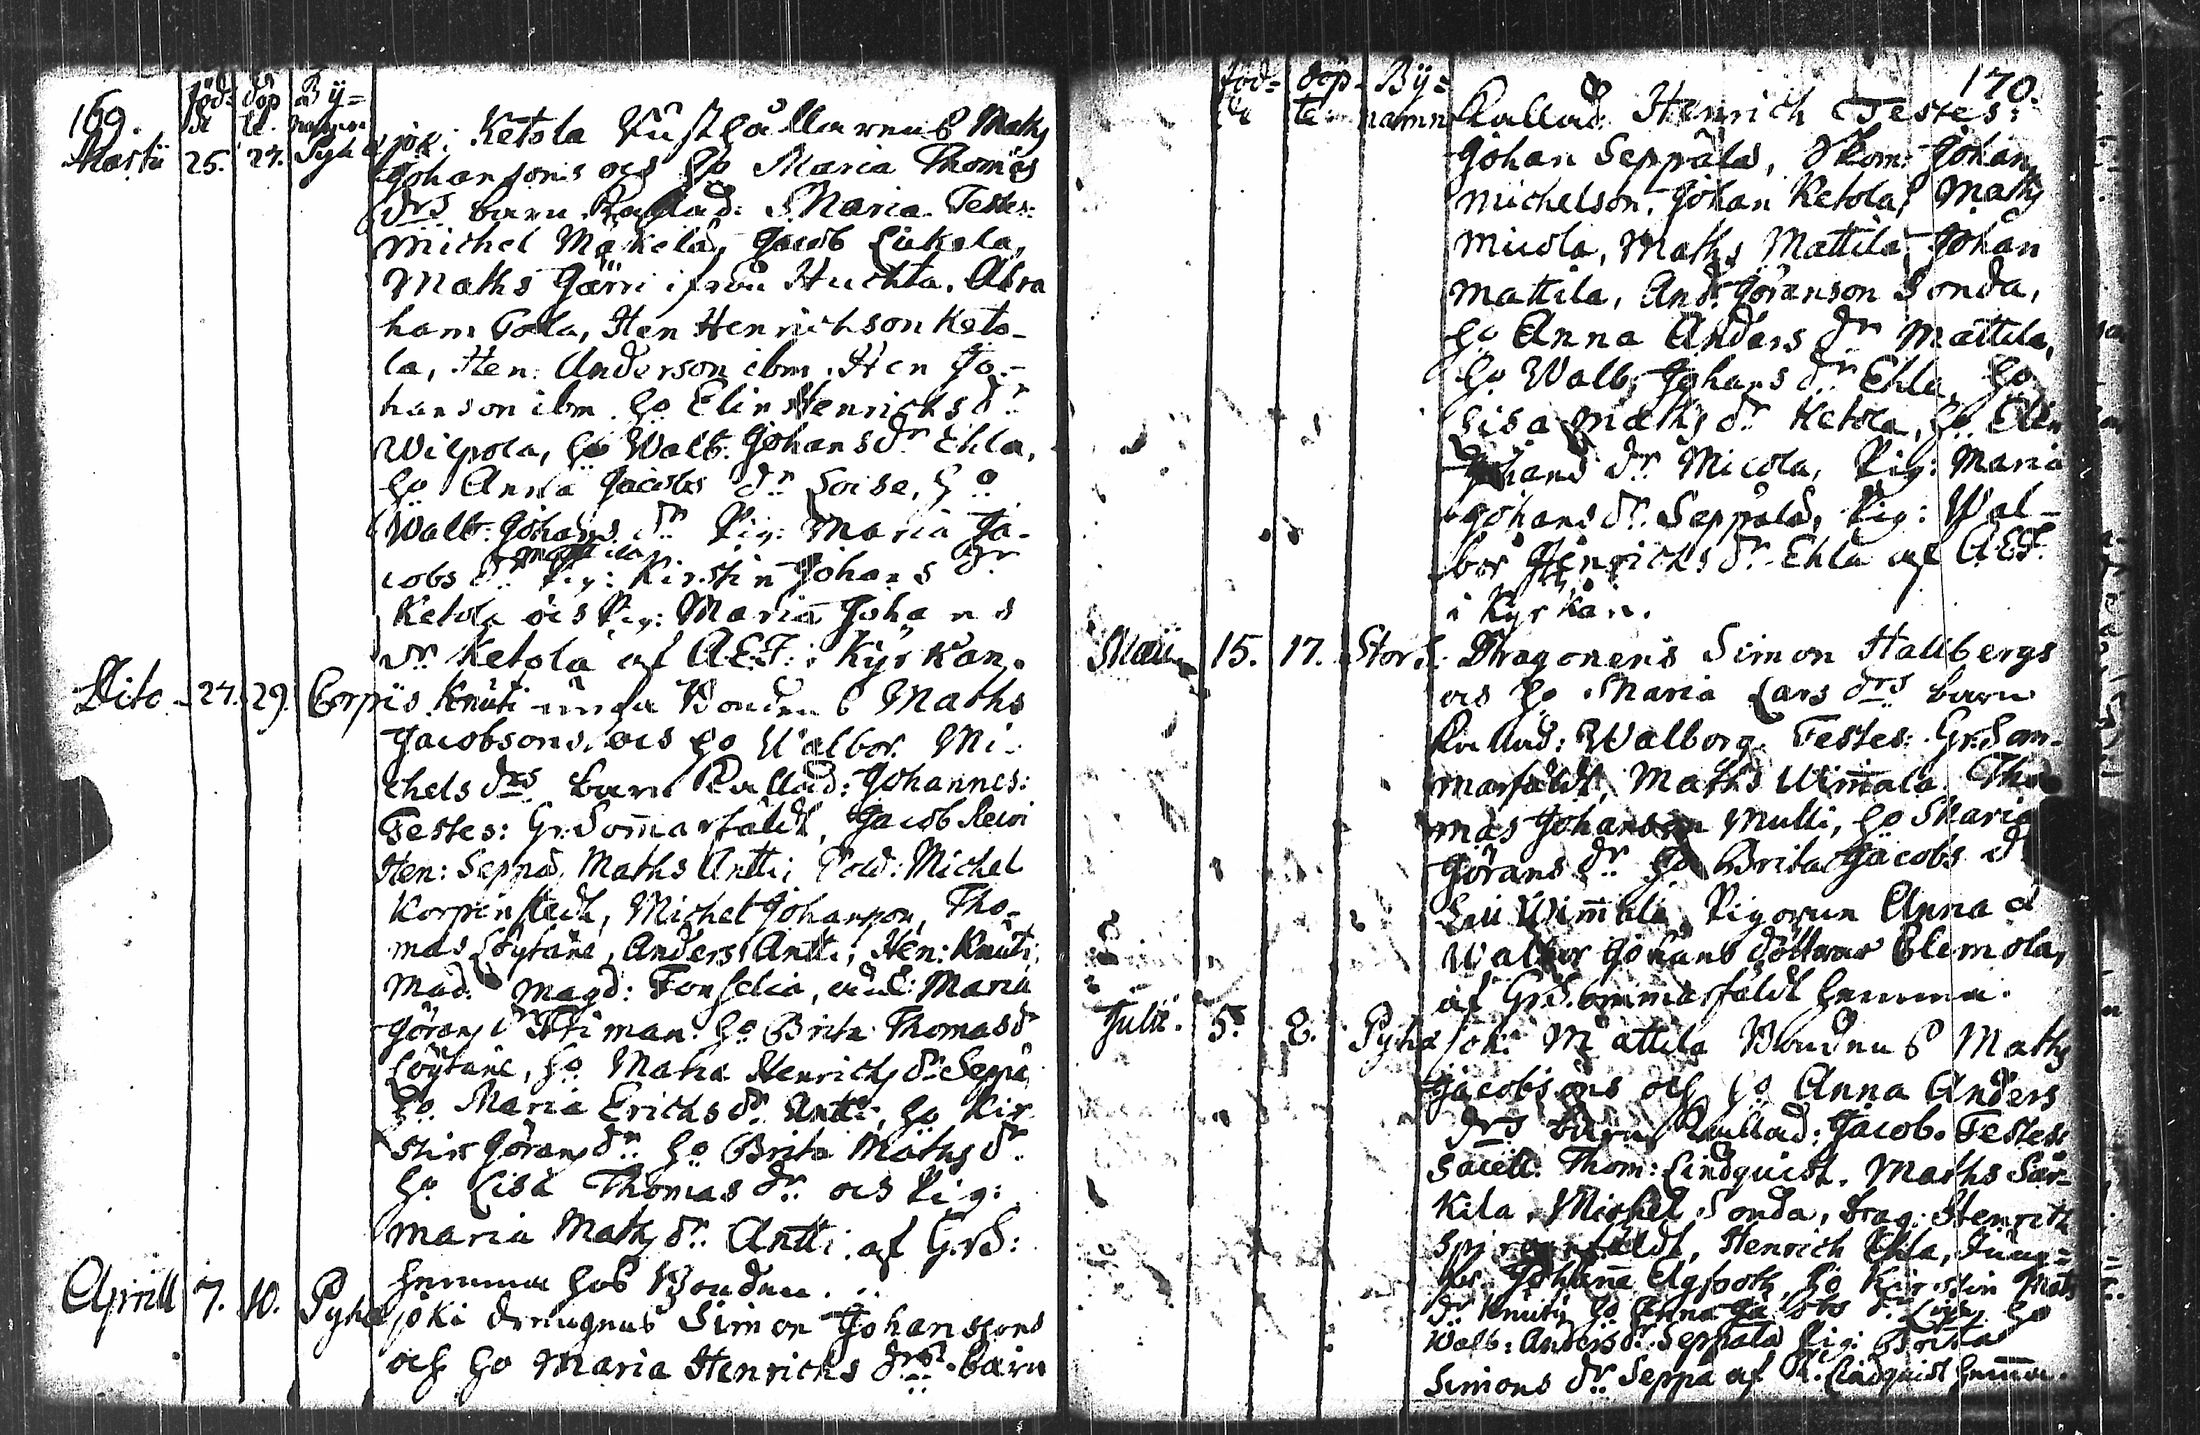 169.
föd= döp By=
de te. namn
Martii 25. 27. Pyhäjoki: Ketola Rusthållarens Maths
Johansons och ho Maria Thomæ
drs barn Kallad: Maria. Testes:
Michel Mäkelä, Jacob Liukola,
Maths Järri ifrån Huchta. Abra
ham Tola, Hen Henrichson Keto-
la, Hen: Anderson ibm. Hen Jo-
hanson ibm. ho Elin Henrichs dr
Wilpola, ho Walb. Johans dr Ehla,
ho Anna Jacobs dr Soise, ho
Walb. Johans dr Pig: Maria Ja-
cobs dr Pig: Kirstin Johans dr
Ketola och Pig: Maria Johans
dr Ketola af A.E.F. i Kyrkan.
Dito 27. 29. Corpis Knuti unga Bondens Maths
Jacobsons, och ho Walbor Mi-
chels drs barn Kallad: Johannes:
Testes: Gr. Som̄arfäldt, Jacob
Hen: Seppä, Maths Antti, Sold: Michel
Korpinstedt, Michel Johanson, Tho-
mas Löytäne, Anders Antti, Hen: Knuti,
Mad. Magd: Fonselia, Maria
Görans dr Ho Brita Thomas dr
Löytäne, ho Maria Henrichs dr Seppä
ho Maria Erichs dr Antti, ho Kir
stin Görans dr ho Brita Maths dr
ho Lisa Thomas dr och Pig:
Maria Maths dr Antti af Gr. S:
hemma hos Bonden.
Aprill 7. 10. Pyhäjoki drengens Simon Johanssons
och ho Maria Henrichs drs barn
170.
föd= döp- By=
de te namn
Kallad: Henrich Testes:
Johan Seppälä, Skom: Johan
Michelson, Johan Ketola, Maths
Micola, Maths Mattila, Johan
Mattila, And: Göranson Sonda,
ho Anna Anders dr Mattila,
ho Walb. Johans dr Ehla ho
Lisa Maths dr Ketola, ho Elin
Johans dr Micola, Pig: Maria
Johans dr Seppälä, Pig: Wal-
bor Henrichs dr Ehla af A.E.F.
i Kyrkan.
Maii 15. 17. Stor S. Dragonens Simon Hallbergs
och ho Maria Lars drs barn
Kallad: Walborg. Testes: Gr. Som-
marfäldt, Maths Wim̄ala Tho
mas Johanson Mulli, ho Maria
Görans dr ho Brita Jacobs d
Wim̄ala, Pigorna Anna o
Walbor Johans döttrar Clemola,
af Gr. Sommarfäldt hemma.
Julii. 5. 8. Pyhäjoki Mattila Bondens Maths
Jacobsons och ho Anna Anders
drs barn Kallad: Jacob. Testes
Sacell. Thom: Lindquist. Maths Sär-
kilä, Michel Sonda, drag: Henrich
Henrich Ehla, Jung=
fr. Johanna Agforth, ho Kirstin Mats
dr Knuti, ho Anna Jacobs dr ho
Walb: Anders dr Seppälä Pig: Brita
Simons dr Seppä af Lindquist hem̄a.